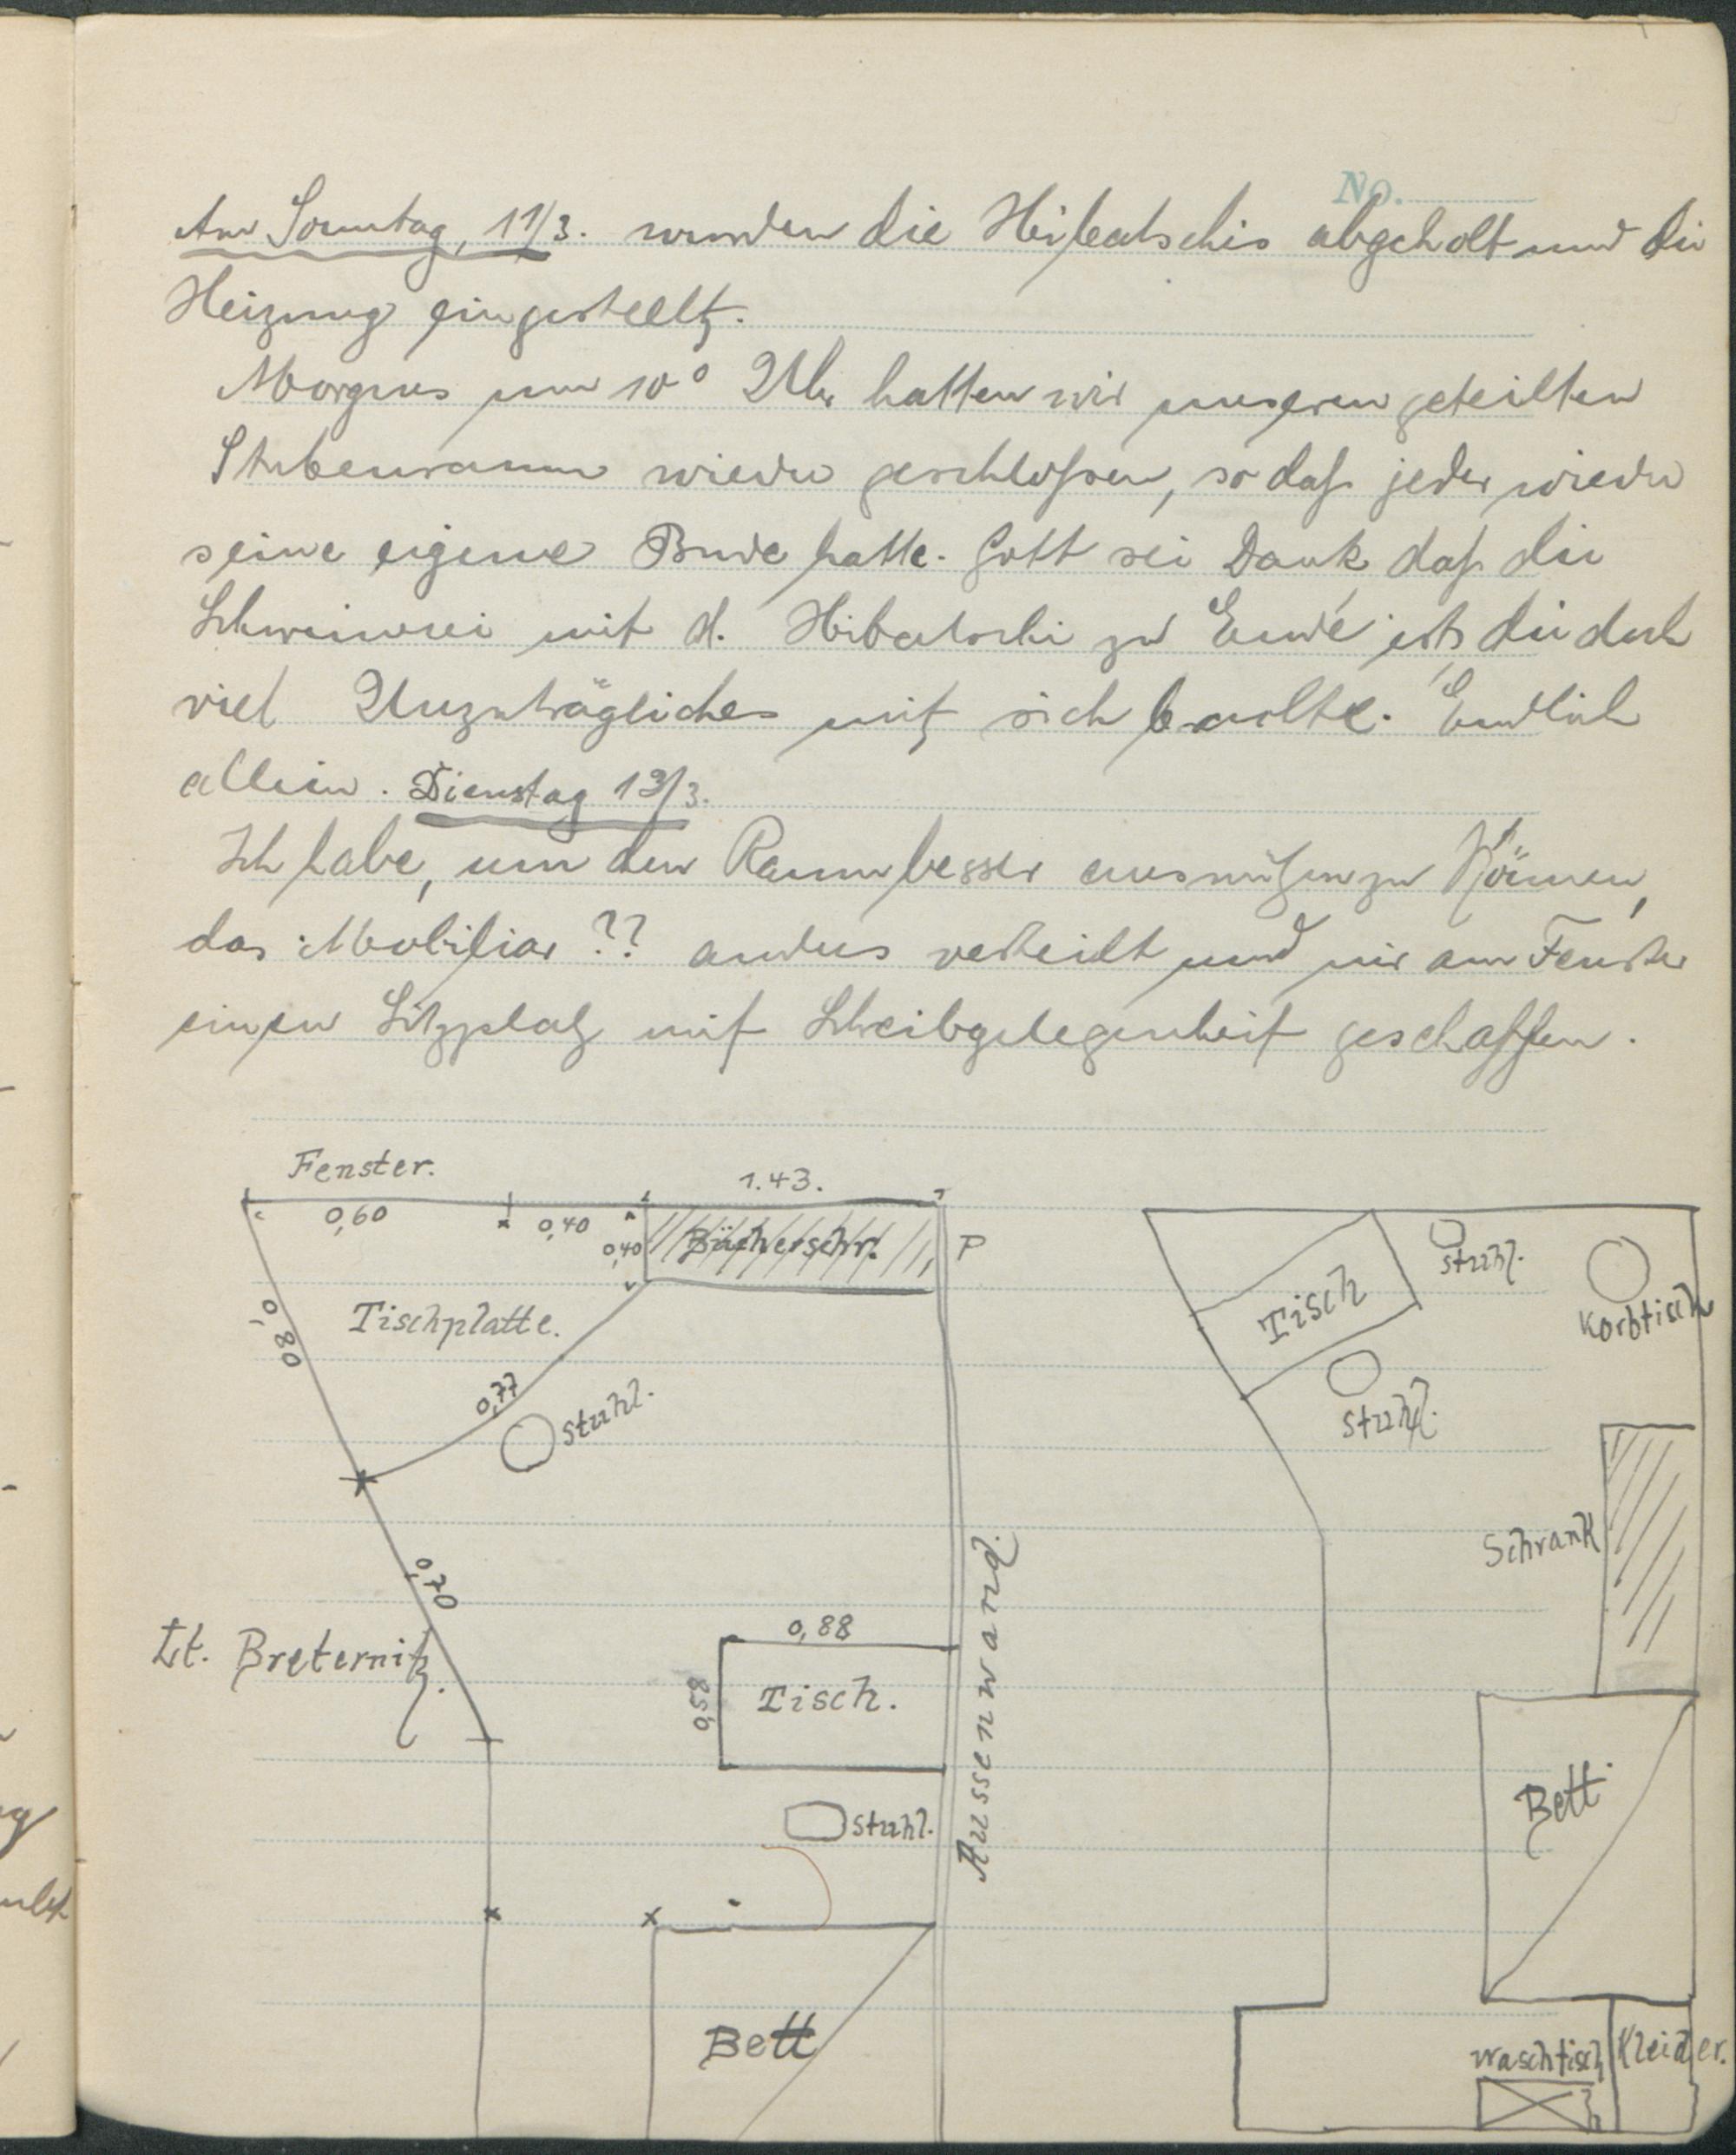 No.
Am Sonntag, 11/3. wurden die Heibatschis abgeholt und die
Heizung eingestellt.
Morgens um 10° Uhr hatten wir unseren geteilten
Stubenraum wieder geschlossen, so daß jeder wieder
seine eigene Bude hatte. Gott sei Dank daß die
Schweinerei mit d. Hibatschi zu Ende ist, die doch
viel Unzuträgliches mit sich brachte. Endlich
allein. Dienstag 13/3.
Ich habe, um den Raum besser ausnützen zu können,
das Mobiliar ?? anders verteilt und mir am Fenster
einen Sitzplatz mit Schreibgelegenheit geschaffen.
Fenster.
1.43.
0,60
0,40
0,40
Bücherschr.
P
0,80
Tischplatte.
0,77
Stuhl.
0,70
Lt. Breternitz.
0,88
0,58
Tisch.
Stuhl.
Aussenwand.
Bett
Tisch
Stuhl.
Korbtisch
Stuhl.
Schrank
Bett
Waschtisch
Kleider.